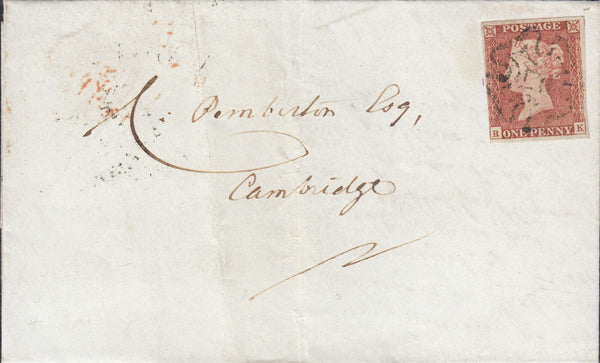 POSTAGE
R ONE PENNY K
Pemberton Esq,
Cambridge